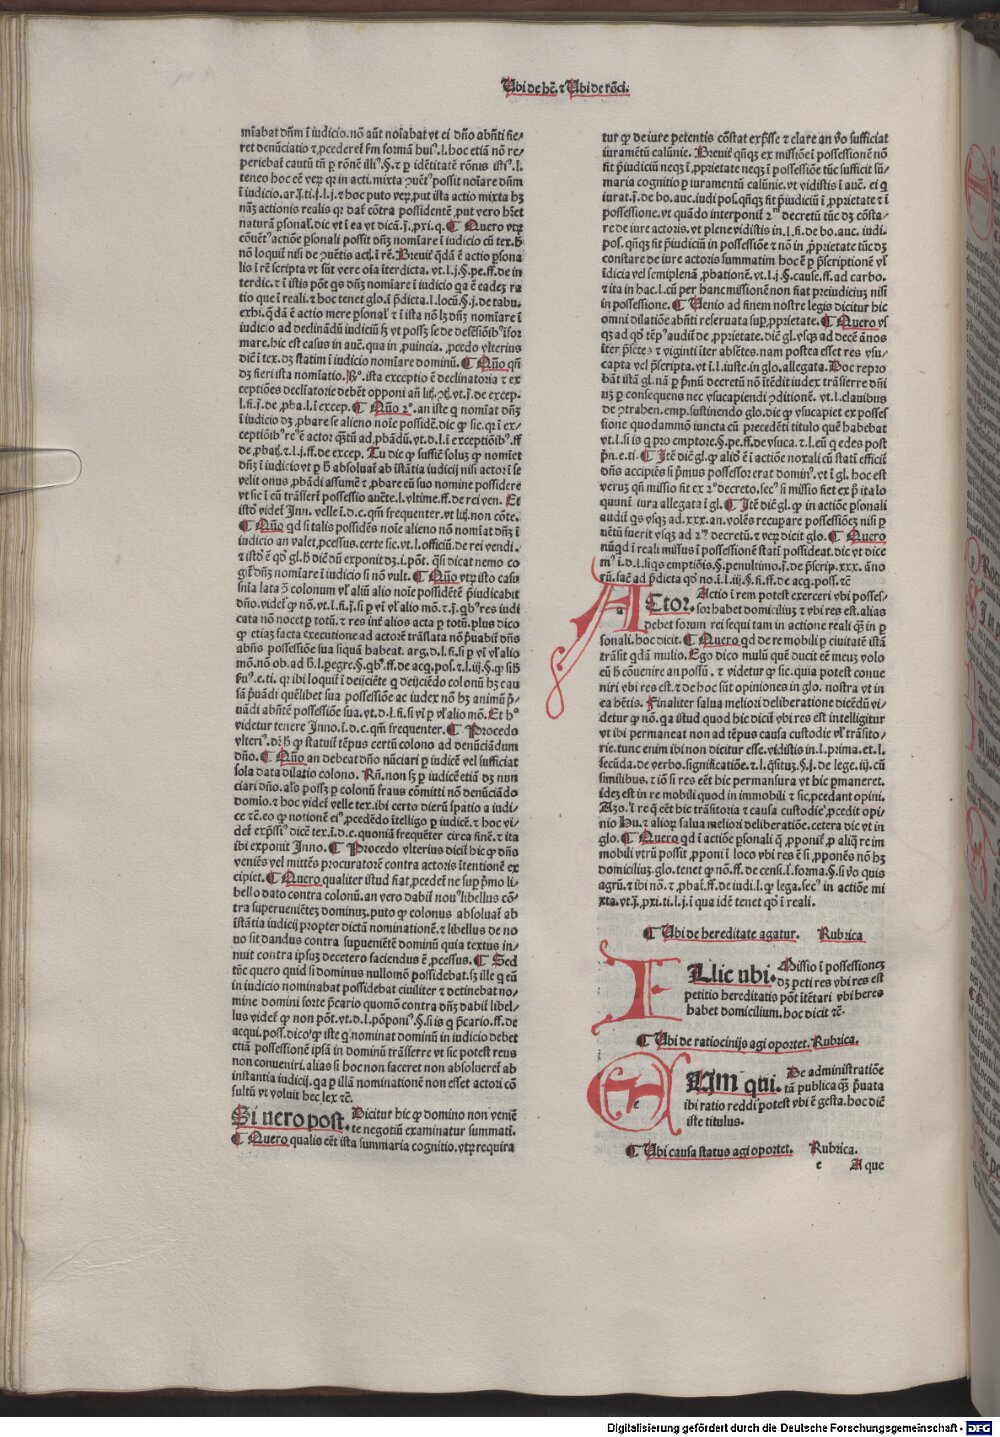 Ubi de hē. ⁊ Ubi de rōci.
mīabat dn̄m ī iudicio. nō aūt noīabat vt ei dn̄o abn̄ti fie⸗
ret denūciatio ⁊ ꝓcederet ẜm formā huiꝰ. l. hoc etiā nō re⸗
periebat cautū tn̄ ꝑ rōnē illiꝰ. §. ⁊ ꝑ idētitatē rōnis istiꝰ. l.
teneo hoc eē veꝝ qꝛ in acti. mixta ꝯuētꝰ possit noīare dn̄m
ī iudicio. ar. ī. ti. j. l. j. ⁊ hoc puto veꝝ, put ista actio mixta hꝫ
nāꝫ actionis realis qꝛ daꝉ cōtra possidentē, put vero hꝫet
naturā ꝑsonaꝉ. dic vt ī ea vt dicā. j. pxi. q. ¶ Quero vtꝝ
cōuētꝰ actiōe ꝑsonali possit dn̄ꝫ nomīare ī iudicio cū tex. h̄
nō loquiꝉ nisi de ꝯuētis actī. ī rē. Breuiꝉ qdā ē actio ꝑsona
lis ī rē scripta vt sūt vere oīa īterdicta. vt. l. j. §. pe. ff. de in
terdic. ⁊ ī istis pōt qs dn̄ꝫ nomīare ī iudicio qa ē eadeꝫ ra
tio que ī reali. ⁊ hoc tenet glo. ī p̄dicta. l. locū. §. j. de tabu.
exhi. qdā ē actio mere ꝑsonaꝉ ⁊ ī ista nō lꝫ dn̄ꝫ nomīare ī
iudicio ad declinādū iudiciū sꝫ vt possꝫ se de defēsiōibꝰ īfor
mare. hic est casus in auē. qua in ꝓuincia. ꝓcedo vlterius
dicē ī tex. dꝫ statim ī iudicio nomīare dominū. ¶ Qūo qn̄
dꝫ fieri ista nomīatio. Rꝰ. ista exceptio ē declinatoria ⁊ ex
ceptiōes decliatorie debēt opponi an̄ lit. ꝯt. vt. j. de excep.
l. fi. j. de, pba. l. ī excep. ¶ Qūo 2ꝰ. an iste q nomīat dn̄ꝫ
ī iudicio dꝫ, pbare se alieno noīe possidē. dic qꝫ sic. qꝛ ī ex⸗
ceptiōibꝰ reꝰ ē actor qꝫtū ad, pbādū. vt. d. l. ī exceptiōibꝰ. ff
de, pbat. ⁊. l. j. ff. de excep. Tu dic qꝫ suffic̄ soluꝫ qꝫ nomīet
dn̄ꝫ ī iudicio vt ꝑ h̄ absoluaꝉ ab īstātia iudicij nisi actor ī se
velit onus, pbādi assumē ⁊, pbare eū suo nomine possidere
vt sic ī eū trāsferri possessio auēte. l. vltime. ff. de rei ven. Et
istō videꝉ Inn. velle ī. d. c. qm̄ frequenter. vt lit. non cōte.
¶ Qūo qd si talis possidēs noīe alieno nō nomīat dn̄ꝫ ī
iudicio an valet, pcessus. certe sic. vt. l. officiū. de rei vendi.
⁊ istō ē qꝫ gl. h̄ dic̄ dū exponit dꝫ. i. pōt. qꝫi dicat nemo co
giꝉ dn̄ꝫ nomīare ī iudicio si nō vult. ¶ Qūo vtꝝ isto casu
snīa lata ꝯ̄ colonum vl̓ aliū alio noīe possidētē p̄iudicabit
dn̄o. videꝉ qꝫ nō. vt. l. fi. j. si ꝑ vī vl̓ alio mō. ⁊. j. qbꝰ res iudi
cata nō nocet ꝑ totū. ⁊ res int̓ alios acta ꝑ totū. plus dico
qꝫ etiaꝫ facta executione ad actorē trāslata nō p̄uabiꝉ dn̄s
abn̄s possessiōe sua siquā habeat. arg. d. l. fi. si ꝑ vī vl̓ alio
mō. nō ob. ad h̄. l. pegre. §. qbꝰ. ff. de acq. pos. ⁊. l. iij. §. qꝫ sib̓
ẜuꝰ. e. ti. qꝛ ibi loquiꝉ ī deijciēte q deijciēdo colonū hꝫ cau
sā p̄uādi quēlibet sua possessiōe ac iudex nō hꝫ animū p̄⸗
uādi abn̄tē possessiōe sua. vt. d. l. fi. si vī p̄ vl̓ alio mō. Et hꝰ
videtur tenere Inno. ī. d. c. qm̄ frequenter. ¶ Procedo
vlteriꝰ. dꝫ h̄ qꝫ statuiꝉ tēpus certū colono ad denūciādum
dn̄o. ¶ Qūo an debeat dn̄o nūciari ꝑ iudicē vel sufficiat
sola data dilatio colono. Rn̄. non sꝫ ꝑ iudicē etiā dꝫ nun
ciari dn̄o. als̄ possꝫ ꝑ colonū fraus cōmitti nō denūciādo
domīo. ⁊ hoc videꝉ velle tex. ibi certo dierū spatio a iudi⸗
ce ⁊c̄. eo qꝫ notionē eiꝰ, pcedēdo ītelligo ꝑ iudicē. ⁊ hoc vi⸗
deꝉ exp̄ssiꝰ dicē tex. ī. d. c. quoniā frequēter circa finē. ⁊ ita
ibi exponit Inno. ¶ Procedo vlterius diciꝉ hic qꝫ dn̄s
veniēs vel mittēs procuratorē contra actoris ītentionē ex
cipiet. ¶ Quero qualiter istud fiat, pcedeꝉ ne sup p̄mo li⸗
bello dato contra colonū. an vero dabiꝉ nouꝰ libellus cō⸗
tra superueniētez dominuꝫ. puto qꝫ colonus absoluaꝉ ab
īstātia iudicij propter dictā nominationē. ⁊ libellus de no
uo sit dandus contra supueniētē dominū quia textus in⸗
nuit contra ipsuꝫ decetero faciendus ē, pcessus. ¶ Sed
tūc quero quid si dominus nullomō possidebat. sꝫ ille q eū
in iudicio nominabat possidebat ciuiliter ⁊ detinebat no⸗
mine domini forte p̄cario quomō contra dn̄ꝫ dabiꝉ libel⸗
lus videꝉ qꝫ non pōt. vt. d. l. pōponiꝰ. §. si is q p̄cario. ff. de
acqui. poss. dico qꝫ iste q nominat dominū in iudicio debet
etiā possessionē ipsā in dominū trāsferre vt sic potest reus
non conueniri. alias si hoc non faceret non absolueret ab
instantia iudicij. qa ꝑ illā nominationē non esset actori cō
sultū vt voluit hec lex ⁊c̄.
Si vero post. Dicitur hic qꝫ domino non veniē
te negotiū examinatur summati.
¶ Quero qualis eēt ista summaria cognitio. vtꝝ requira
tur qꝫ de iure petentis cōstat exp̄sse ⁊ clare an vo̓ sufficiat
iuramētū calūnie. Breuiꝉ qn̄qꝫ ex missiōe ī possessionē nō
fit p̄iudiciū neqꝫ ī, pprietate neqꝫ ī possessiōe tūc sufficit sū⸗
maria cognitio ꝑ iuramentū calūnie. vt vidistis ī auē. ei q
iurat. j. de bo. auc. iudi pos. qn̄qꝫ fit p̄iudiciū ī, pprietate ⁊ ī
possessione. vt quādo interponiꝉ 2ᵐ decretū tūc dꝫ cōsta⸗
re de iure actoris. vt plene vidistis in. l. fi. de bo. auc. iudi.
pos. qn̄qꝫ fit p̄iudiciū in possessiōe ⁊ nō in, pprietate tūc dꝫ
constare de iure actoris summatim hoc ē ꝑ p̄scriptionē vl̓
īdicia vel semiplenā, pbationē. vt. l. j. §. cause. ff. ad carbo.
⁊ ita in hac. l. cū per hanc missionē non fiat preiudiciuꝫ nisi
in possessione. ¶ Uenio ad finem nostre legis dicitur hic
omni dilatiōe abn̄ti reseruata sup, pprietate. ¶ Quero vs
qꝫ ad qō tēpꝰ audiꝉ de, pprietate. dic̄ gl. vsqꝫ ad decē ānos
īter p̄sētes ⁊ viginti īter absētes. nam postea esset res vsu⸗
capta vel p̄scripta. vt ī. l. iuste. in glo. allegata. Hoc repro
bāt istā gl. nā ꝑ p̄mū decretū nō ītēdit iudex trāsferre dn̄i
uꝫ ꝑ consequens nec vsucapiendi ꝯditionē. vt. l. clauibus
de ꝯtraben. emp. sustinendo glo. dic qꝫ vsucapiet ex posses
sione quodammō iuncta cū precedēti titulo quē habebat
vt. l. si is q pro emptore. §. pe. ff. de vsuca. ⁊. l. eū q edes post
p̄n. e. ti. ¶ Itē dic̄ gl. qꝫ aliō ē ī actiōe noxali cū statī efficiꝉ
dn̄s accipiēs si p̄mus possessor erat dominꝰ. vt ī gl. hoc est
veruꝫ qn̄ missio fit ex 2ꝰ decreto. secꝰ si missio fiet ex p̄ ita lo
quunꝉ iura allegata ī gl. ¶ Itē dic̄ gl. qꝫ in actiōe ꝑsonali
audiꝉ qs vsqꝫ ad. xxx. an. volēs recupare possessiōeꝫ nisi p̄
uētū fuerit vsqꝫ ad 2ᵐ decretū. ⁊ veꝝ dicit glo. ¶ Quero
nūqd ī reali missus ī possessionē statī possideat. dic vt dice
mꝰ ī. d. l. si qs emptiōis. §. penultimo. j. de p̄scrip. xxx. āno
rū. fac̄ ad p̄dicta qō no. ī. l. iij. §. fi. ff. de acq. poss. ⁊c̄
Actor. Actio ī rem potest exerceri vbi posses⸗
a
sor habet domiciliuꝫ ⁊ vbi res est. alias
debet forum rei sequi tam in actione reali qꝫ in ꝑ
sonali. hoc dicit. ¶ Quero qd de re mobili ꝑ ciuitatē istā
trāsit qdā mulio. Ego dico mulū quē ducit eē meuꝫ volo
eū h̄ cōuenire an possū. ⁊ videtur qꝫ sic. quia potest conue
niri vbi res est. ⁊ de hoc sūt opiniones in glo. nostra vt in
ea hētis. Finaliter salua meliori deliberatione dicēdū vi⸗
detur qꝫ nō. qa istud quod hic diciꝉ vbi res est intelligitur
vt ibi permaneat non ad tēpus causa custodie vl̓ trāsito⸗
rie. tunc enim ibi non dicitur esse. vidistis in. l. prima. et. l.
secūda. de verbo. significatiōe. ⁊. l. qꝫsitꝫ. §. j. de lege. iij. cū
similibus. ⁊ iō si res eēt hic permansura vt hic ꝑmaneret.
ideꝫ est in re mobili quod in immobili ⁊ sic, pcedant opini.
Azo. ī re q eēt hic trāsitoria ⁊ causa custodie, pcedit opi⸗
nio Hu. ⁊ alioꝝ salua meliori deliberatiōe. cetera dic vt in
glo. ¶ Quero qd ī actiōe ꝑsonali q, pponiꝉ, p aliq̄ re im
mobili vtrū possit, pponi ī loco vbi res ē si, pponēs nō hꝫ
domiciliuꝫ. glo. tenet qꝫ nō. ff. de censi. l. forma. §. si vo̓ quis
agrū. ⁊ ibi nō. ⁊, pbaꝉ. ff. de iudi. l. qꝫ lega. secꝰ in actiōe mi
xta. vt. j. pxi. ti. l. j. ī qua idē tenet qō ī reali.
¶ Ubi de hereditate agatur. Rubrica
Illic ubi. Missio ī possessioneꝫ
dꝫ peti res vbi res est
petitio hereditatis pōt ītētari vbi heres
habet domicilium. hoc dicit ⁊c̄.
¶ Ubi de ratiocinijs agi oportet. Rubrica.
Eum qui. De administratiōe
e
tā publica qꝫ p̄uata
ibi ratio reddi potest vbi ē gesta. hoc dic̄
iste titulus.
¶ Ubi causa status agi oportet. Rubrica.
e A que
Digitalisierung gefördert durch die Deutsche Forschungsgemeinschaft - DFG